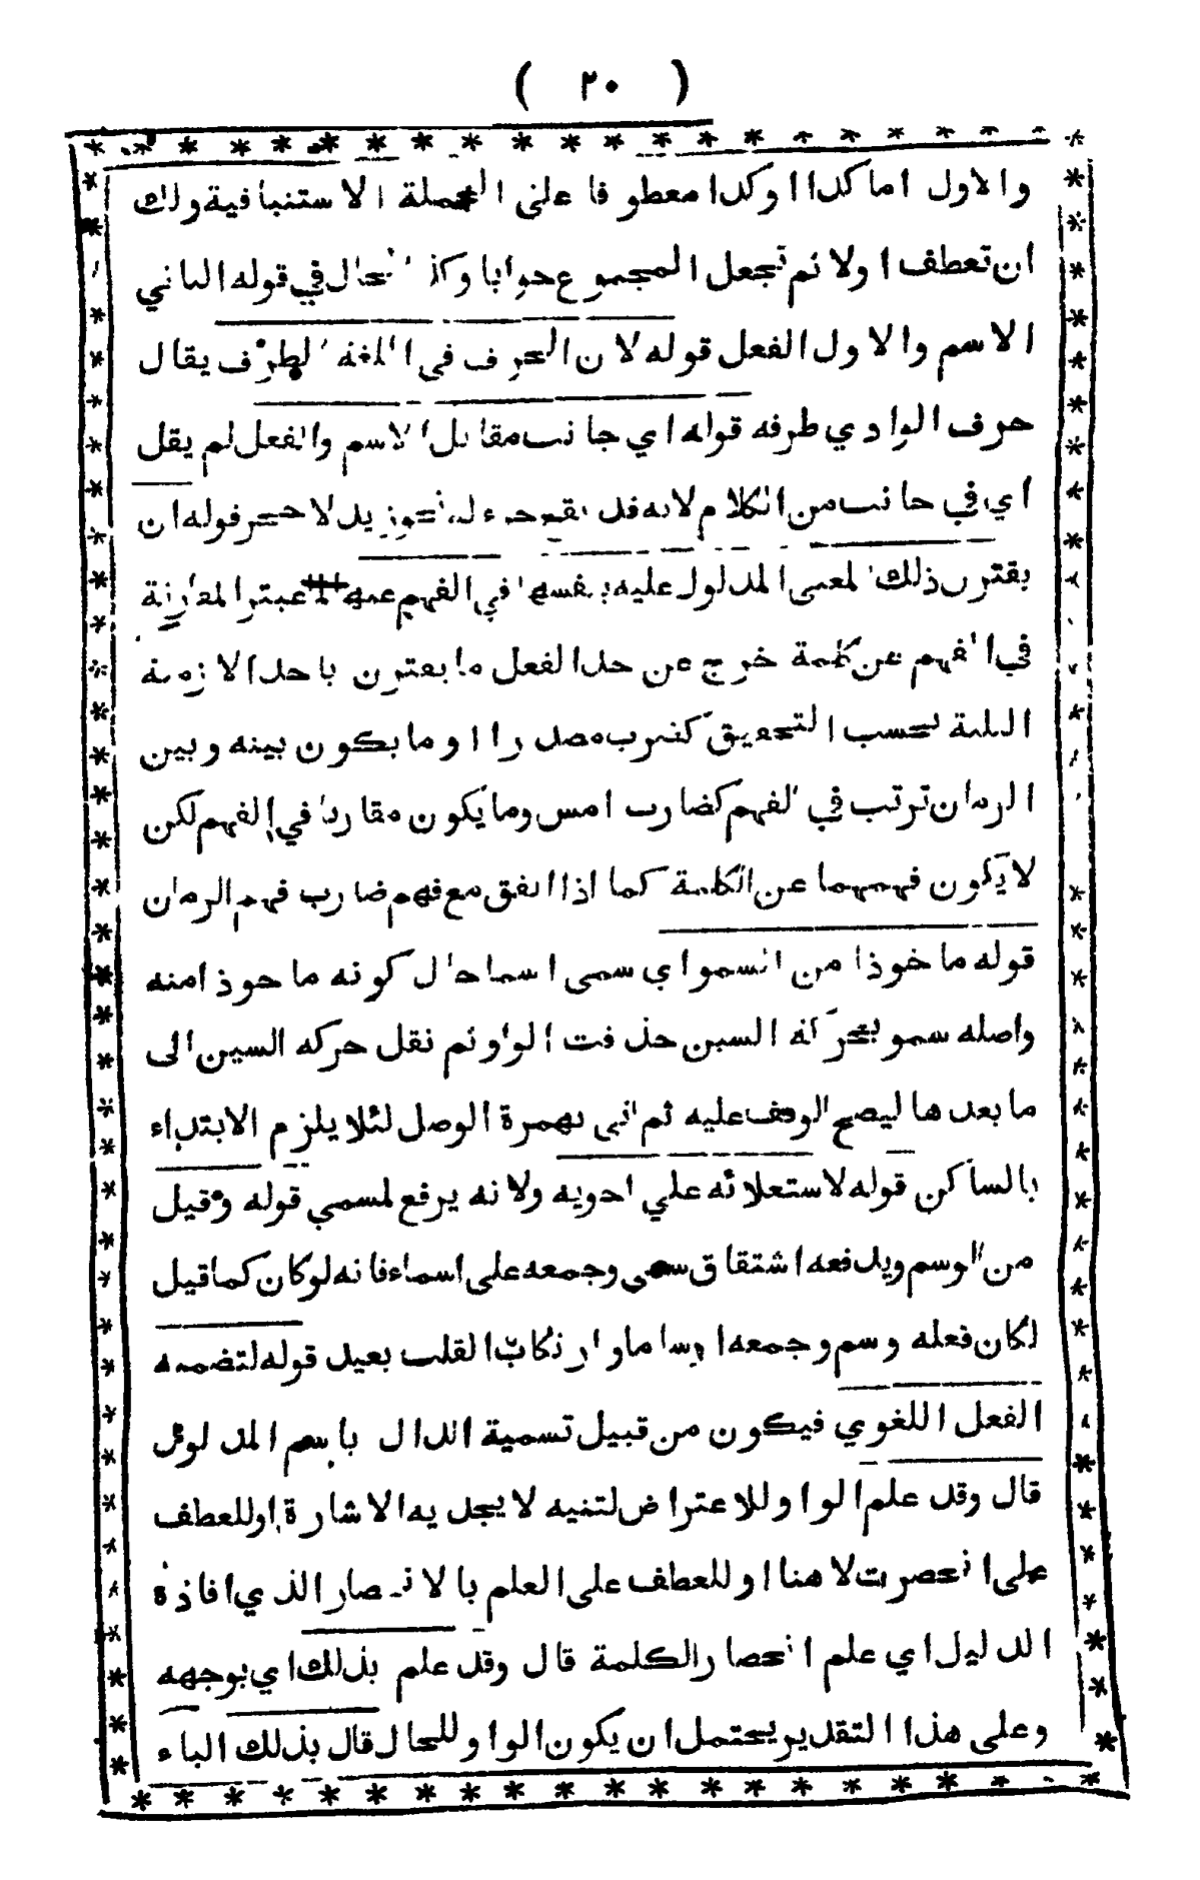 ( ٢٠ )
والاول اما كذا او كذا معطوفا على الجملة الاستنبافية ولك
ان تعطف اولا ثم تجعل المجموع جوابا وكذا الحال في قوله الثاني
الاسم والاول الفعل قوله لان الحرف في اللغة الطرف يقال
حرف الوادي طرفه قوله اي جانب مقابل الاسم والفعل لم يقل
اي في جانب من الكلام لانه قد يقع نحو زيد لا حجر قوله ان
يقترن ذلك المعنى المدلول عليه بنفسها في الفهم عنها اعتبر المقارنة
في الفهم عن كلمة خرج عن حد الفعل ما يقترن باحد الازمنة
الثلثة بحسب التحقيق كضرب مصدرا او ما يكون بينه وبين
الزمان ترتب في الفهم كضارب امس وما يكون مقارنا في الفهم لكن
لا يكون فهمهما عن الكلمة كما اذا اتفق مع فهم ضارب فهم الزمان
قوله ماخوذا من السمو اي سمى اسما حال كونه ماخوذا منه
واصله سمو بحركة السين حذفت الواو ثم نقل حركه السين الى
ما بعدها ليصح الوقف عليه ثم اتى بهمزة الوصل لئلا يلزم الابتداء
بالساكن قوله لاستعلائه علي اخويه ولانه يرفع لمسمي قوله وقيل
من الوسم ويدفعه اشتقاق سمى وجمعه على اسماء فانه لو كان كما قيل
لكان فعله وسم وجمعه اوساما وارتكاب القلب بعيد قوله لتضمنه
الفعل اللغوي فيكون من قبيل تسمية الدال باسم المدلول
قال وقد علم الواو للاعتراض لتنبيه لا يجديه الاشارة او للعطف
على انحصرت لا هنا او للعطف على العلم بالانحصار الذي افاده
الدليل اي علم انحصار الكلمة قال وقد علم بذلك اي بوجهه
وعلى هذا التقدير يحتمل ان يكون الواو للحال قال بذلك الباء